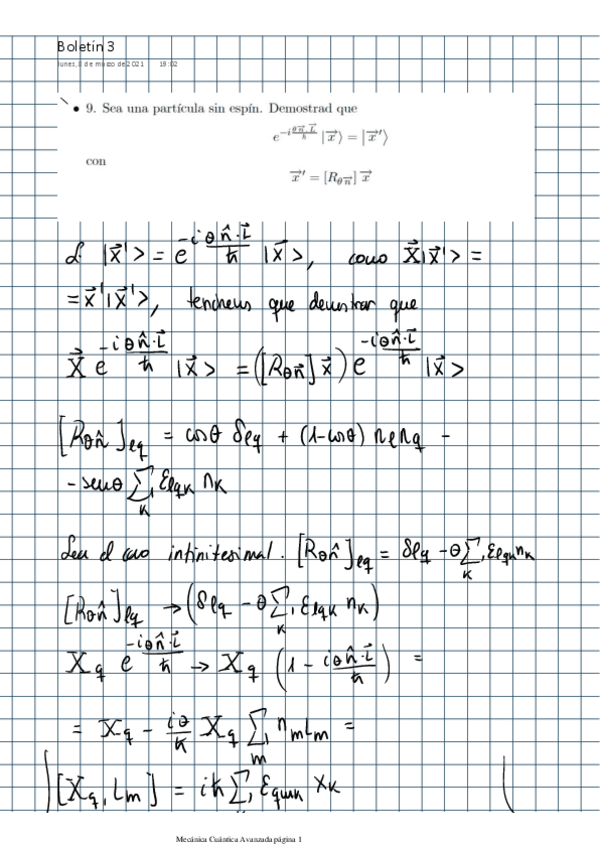 Boletín 3
lunes, 8 de marzo de 2021 19:02
• 9. Sea una partícula sin espín. Demostrad que
e^{-i\frac{θ\vec{n}·\vec{L}}{ħ}} |\vec{x}⟩ = |\vec{x}'⟩
con
\vec{x}' = [R_{θ\vec{n}}] \vec{x}
|\vec{x}'> = e^{\frac{-iθ\hat{n}·\vec{L}}{ħ}} |\vec{x}>, como \vec{X}|\vec{x}'> =
= \vec{x}'|\vec{x}'>, tenemos que demostrar que
\vec{X} e^{\frac{-iθ\hat{n}·\vec{L}}{ħ}} |\vec{x}> = ([R_{θ\vec{n}}] \vec{x}) e^{\frac{-iθ\hat{n}·\vec{L}}{ħ}} |\vec{x}>
[R_{θ\hat{n}}]_{lq} = cosθ δ_{lq} + (1-cosθ) n_l n_q -
- senθ ∑_k ε_{lqk} n_k
Sea el caso infinitesimal. [R_{θ\hat{n}}]_{lq} = δ_{lq} - θ ∑_k ε_{lqk} n_k
[R_{θ\hat{n}}]_{lq} → (δ_{lq} - θ ∑_k ε_{lqk} n_k)
X_q e^{\frac{-iθ\hat{n}·\vec{L}}{ħ}} → X_q (1 - \frac{iθ\hat{n}·\vec{L}}{ħ}) =
= X_q - \frac{iθ}{ħ} X_q ∑_m n_m L_m =
[X_q, L_m] = iħ ∑_k ε_{qmk} X_k
Mecánica Cuántica Avanzada página 1